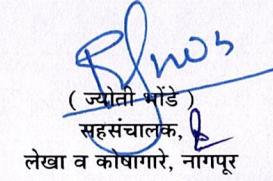 ( ज्योती भोंडे )
सहसंचालक,
लेखा व कोषागारे, नागपूर